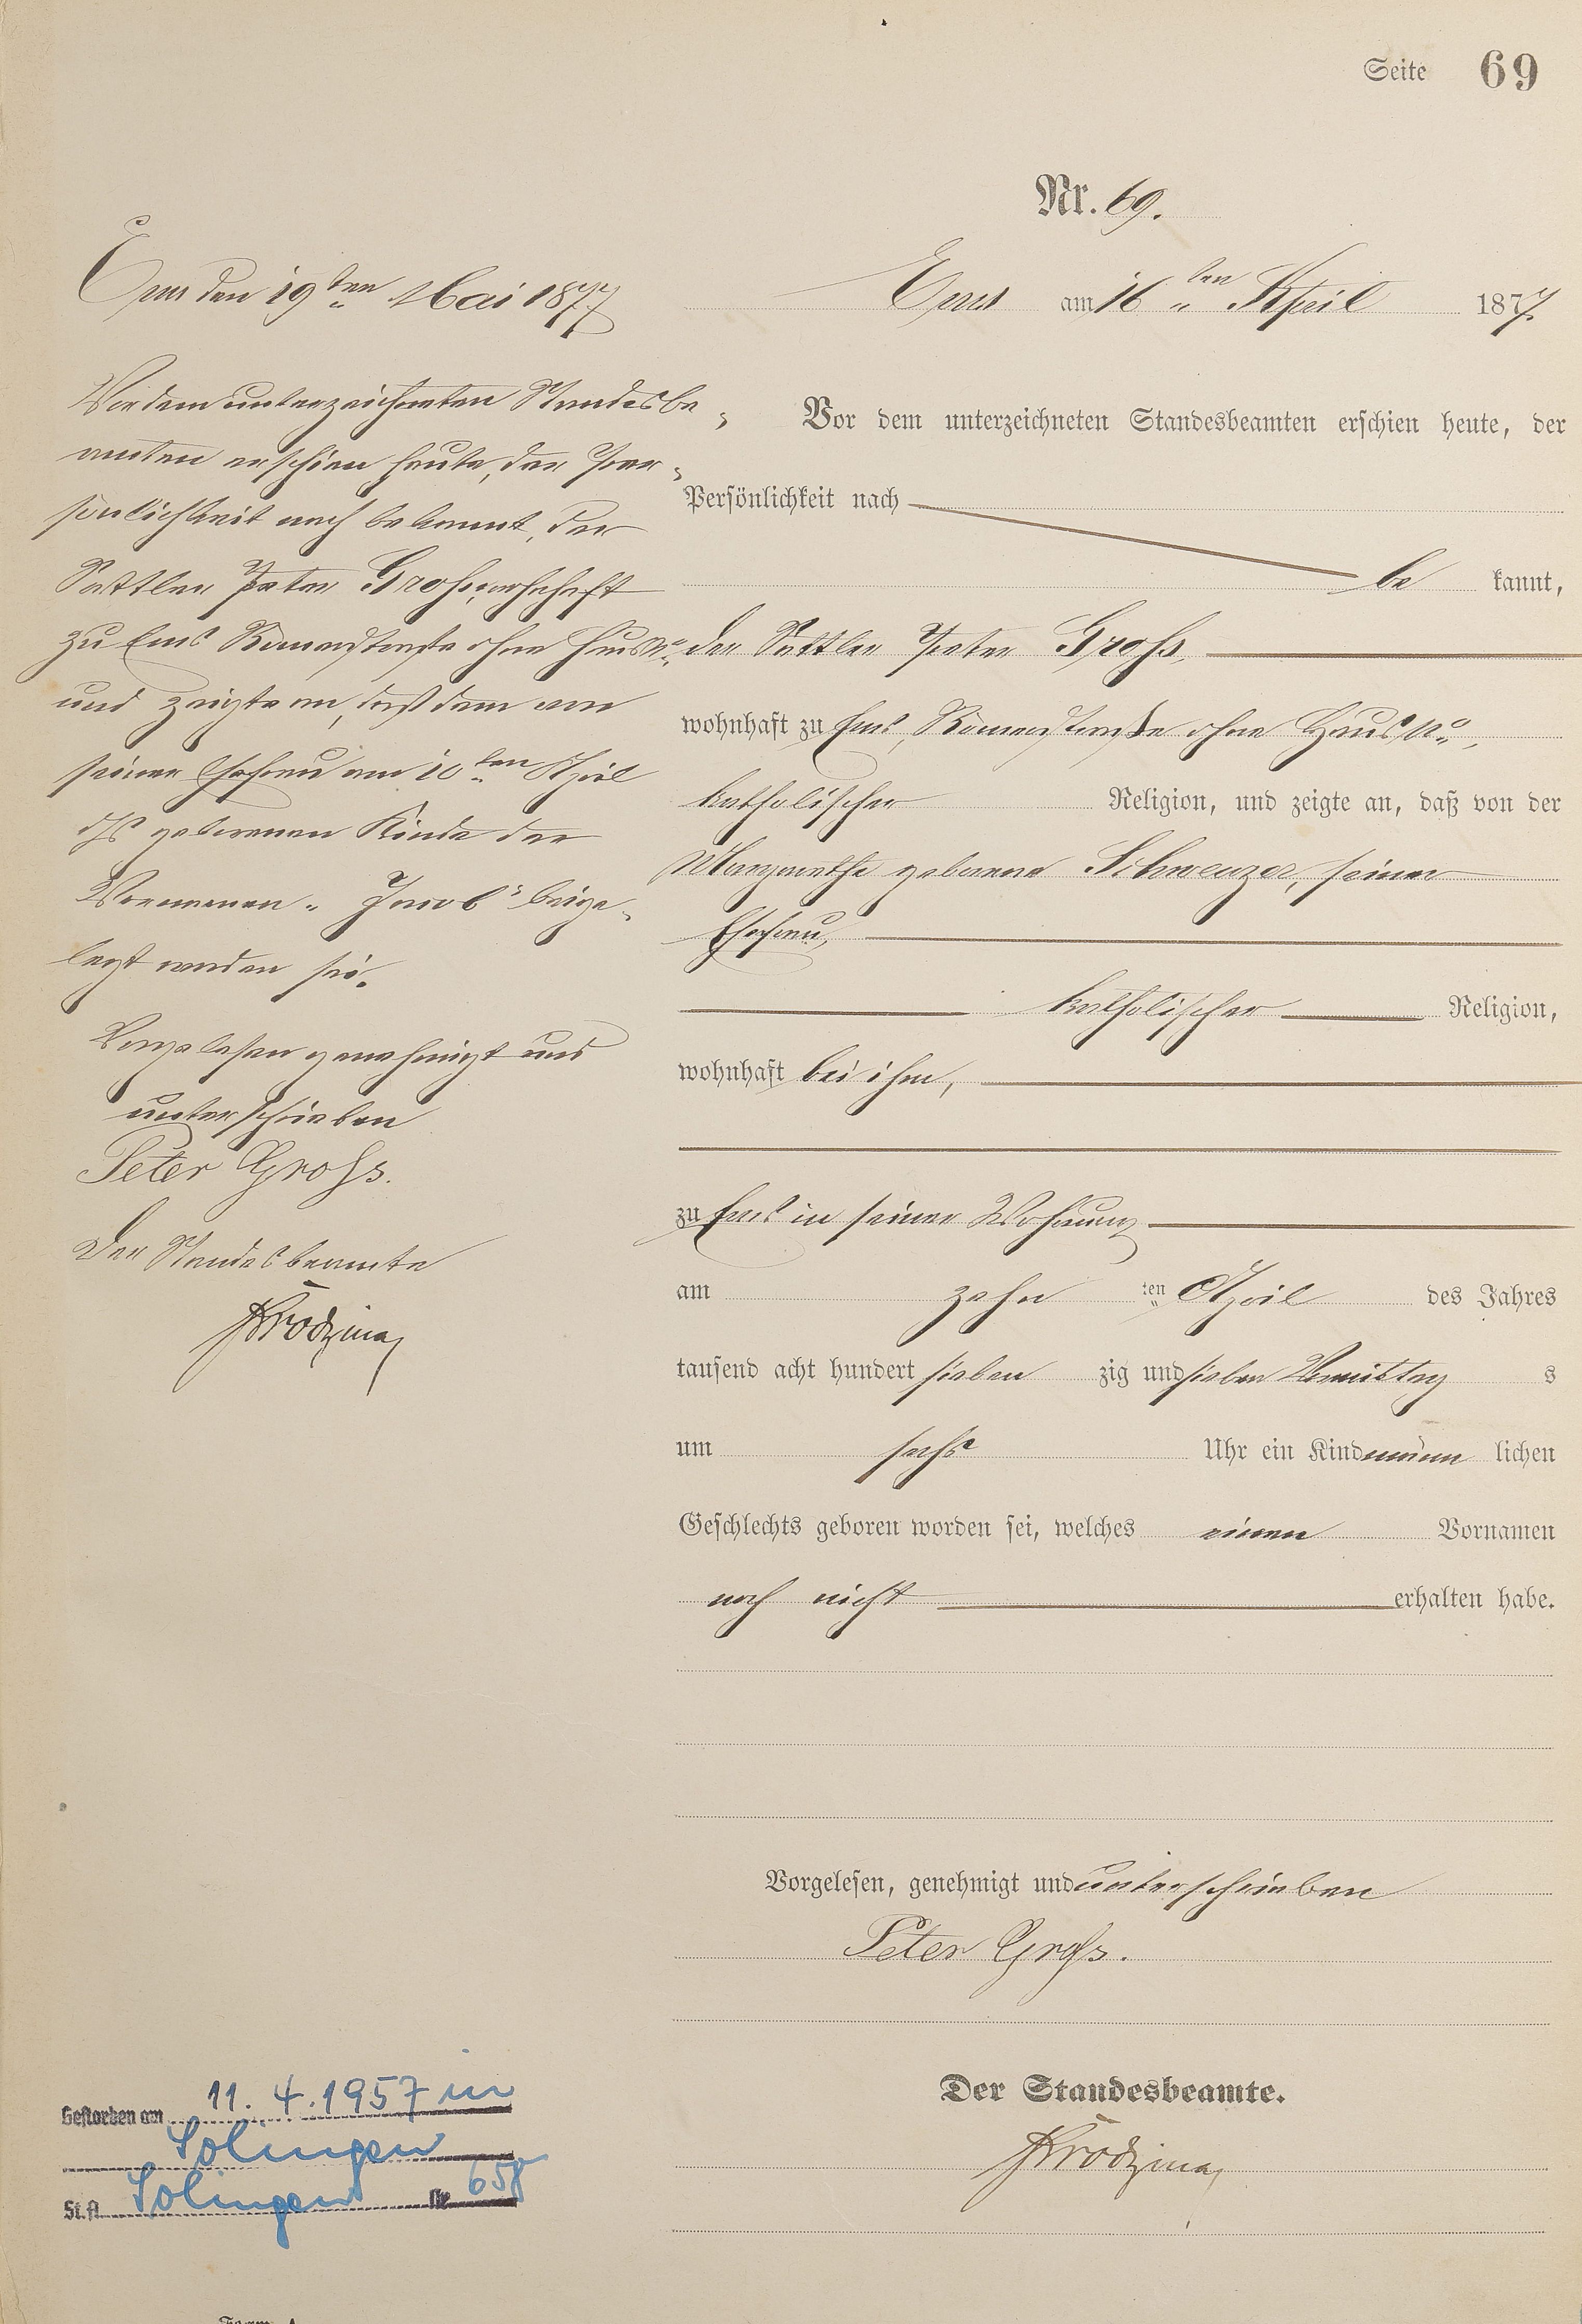 Seite 69
Nr. 69.
Ems am 16ten April 1877.
Vor dem unterzeichneten Standesbeamten erschien heute, der
Persönlichkeit nach
be kannt,
der Sattler Peter Groß,
wohnhaft zu Ems, Römerstraße ohne Haus No.,
katholischer Religion, und zeigte an, daß von der
Margarethe geborene Schwenzer, seiner
Ehefrau,
katholischer Religion,
wohnhaft bei ihm,
zu Ems in seiner Wohnung
am zehn ten April des Jahres
tausend acht hundert sieben zig und sieben Vormittag s
um sechs Uhr ein Kind männ lichen
Geschlechts geboren worden sei, welches einen Vornamen
noch nicht erhalten habe.
Vorgelesen, genehmigt und unterschrieben
Peter Groß.
Der Standesbeamte.
Ems den 19ten Mai 1877
Vor dem unterzeichneten Standesbe-
amten erschien heute, der Per-
sönlichkeit nach bekannt, der
Sattler Peter Groß, wohnhaft
zu Ems Römerstraße ohne Haus No.
und zeigte an, daß dem von
seiner Ehefrau am 10ten April
ds geborenen Kinde der
Vornamen „Jacob“ beige-
legt worden sei.
Vorgelesen genehmigt und
unterschrieben
Peter Groß.
Der Standesbeamte
Gestorben am 11.4.1957 in
Solingen
St.A. Solingen Nr 658